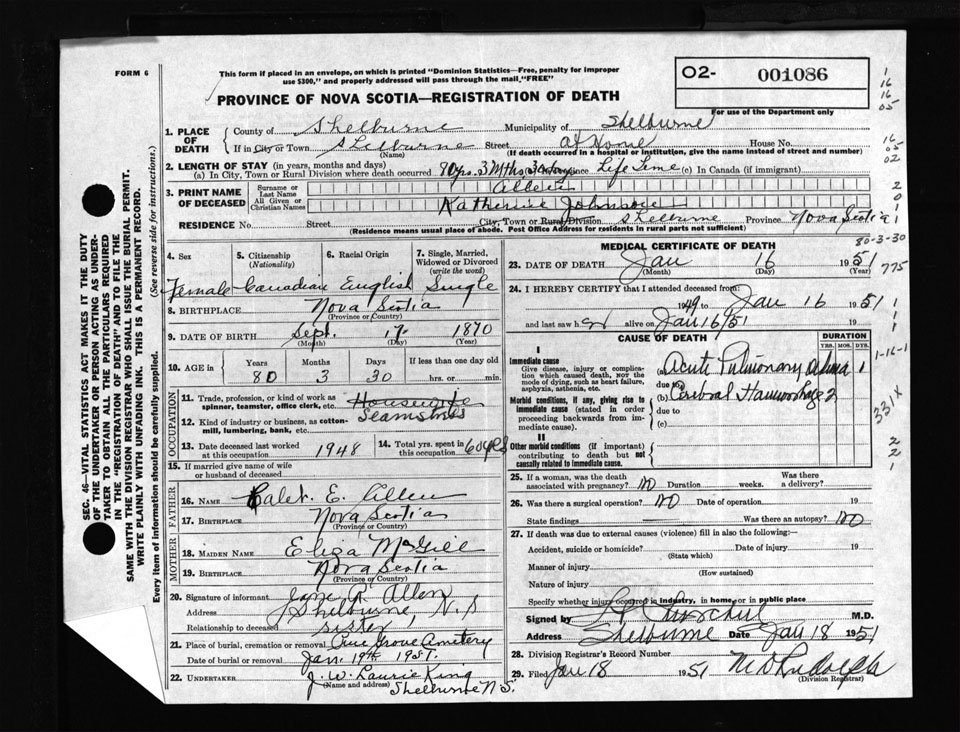 FORM 6
This form if placed in an envelope, on which is printed "Dominion Statistics—Free, penalty for improper
use $300," and properly addressed will pass through the mail, "FREE"
O2- 001086
For use of the Department only
PROVINCE OF NOVA SCOTIA—REGISTRATION OF DEATH
1. PLACE OF DEATH
County of Shelburne Municipality of Shelburne
If in City or Town Shelburne Street at Home House No.
(Name) (If death occurred in a hospital or institution, give the name instead of street and number)
2. LENGTH OF STAY (in years, months and days)
(a) In City, Town or Rural Division where death occurred 80 yrs. 3 Mths 30 days Province Life Time (c) In Canada (if immigrant)
3. PRINT NAME OF DECEASED
Surname or Last Name Allen
All Given or Christian Names Katherine Johnstone
RESIDENCE No. Street City, Town or Rural Division Shelburne Province Nova Scotia
(Residence means usual place of abode. Post Office Address for residents in rural parts not sufficient)
4. Sex 5. Citizenship (Nationality) 6. Racial Origin 7. Single, Married, Widowed or Divorced (write the word)
Female Canadian English Single
8. BIRTHPLACE Nova Scotia
(Province or Country)
9. DATE OF BIRTH Sept. 17 1870
(Month) (Day) (Year)
10. AGE in Years Months Days If less than one day old
80 3 30 hrs. or min.
OCCUPATION
11. Trade, profession, or kind of work as spinner, teamster, office clerk, etc. Housewife
Seamstress
12. Kind of industry or business, as cotton-mill, lumbering, bank, etc.
13. Date deceased last worked at this occupation 1948 14. Total yrs. spent in this occupation 60 yrs
15. If married give name of wife or husband of deceased
FATHER
16. NAME Caleb E. Allen
17. BIRTHPLACE Nova Scotia
(Province or Country)
MOTHER
18. MAIDEN NAME Eliza McGill
19. BIRTHPLACE Nova Scotia
(Province or Country)
20. Signature of informant Jane R. Allen
Address Shelburne, N.S
Relationship to deceased sister
21. Place of burial, cremation or removal Pine Grove Cemetery
Date of burial or removal Jan. 19th 1951.
22. UNDERTAKER J. W. Laurie King
(Name and address) Shelburne N.S.
MEDICAL CERTIFICATE OF DEATH
80-3-30
23. DATE OF DEATH Jan 16 1951
(Month) (Day) (Year)
775
24. I HEREBY CERTIFY that I attended deceased from
1949 to Jan 16 1951
and last saw her alive on Jan 16/51 19
CAUSE OF DEATH DURATION
YRS. MOS. DYS.
I
Immediate cause
Give disease, injury or complication which caused death, NOT the mode of dying, such as heart failure, asphyxia, asthenia, etc.
(a) Acute Pulmonary Edema 1
due to
Morbid conditions, if any, giving rise to immediate cause (stated in order proceeding backwards from immediate cause).
(b) Cerebral Haemorrhage 2
due to
(c)
II
Other morbid conditions (if important) contributing to death but not causally related to immediate cause.
1-16-1
331X
25. If a woman, was the death associated with pregnancy? NO Duration weeks. Was there a delivery?
26. Was there a surgical operation? NO Date of operation 19
State findings Was there an autopsy? NO
27. If death was due to external causes (violence) fill in also the following:—
Accident, suicide or homicide? Date of injury 19
(State which)
Manner of injury
(How sustained)
Nature of injury
Specify whether injury occurred in industry, in home, or in public place
Signed by M.D.
Address Shelburne Date Jan 18 1951
28. Division Registrar's Record Number
29. Filed Jan 18 1951
(Division Registrar)
SEC. 46—VITAL STATISTICS ACT MAKES IT THE DUTY
OF THE UNDERTAKER OR PERSON ACTING AS UNDER-
TAKER TO OBTAIN ALL THE PARTICULARS REQUIRED
IN THE "REGISTRATION OF DEATH" AND TO FILE THE
SAME WITH THE DIVISION REGISTRAR WHO SHALL ISSUE THE BURIAL PERMIT.
WRITE PLAINLY WITH UNFADING INK. THIS IS A PERMANENT RECORD.
Every item of information should be carefully supplied. (See reverse side for instructions.)